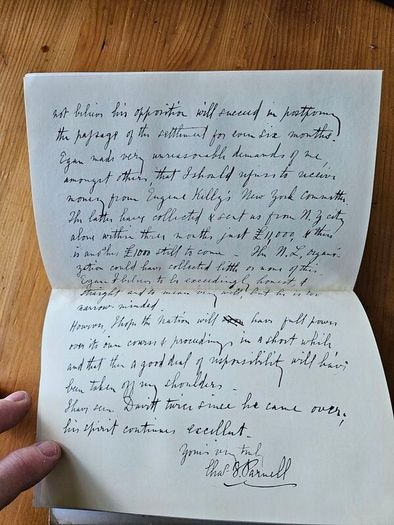 not believe his opposition will succeed in postponing
the passage of the settlement for even six months.
Egan made very unreasonable demands of me,
amongst others that I should refuse to receive
money from Eugene Kelly's New York Committee
The latter have collected & sent us from N.Y. city
alone within three months just £11,000 & there
is another £1000 still to come. The N.L. organi-
zation could have collected little or none of this.
Egan I believe to be exceedingly honest &
straight and to mean very well, but he is too
narrow minded.
However, I hope the Nation will have full power
over its own course & proceedings in a short while
and that then a good deal of responsibility will have
been taken off my shoulders.
I have seen Davitt twice since he came over;
his spirit continues excellent.
Yours very truly
Chas. S. Parnell